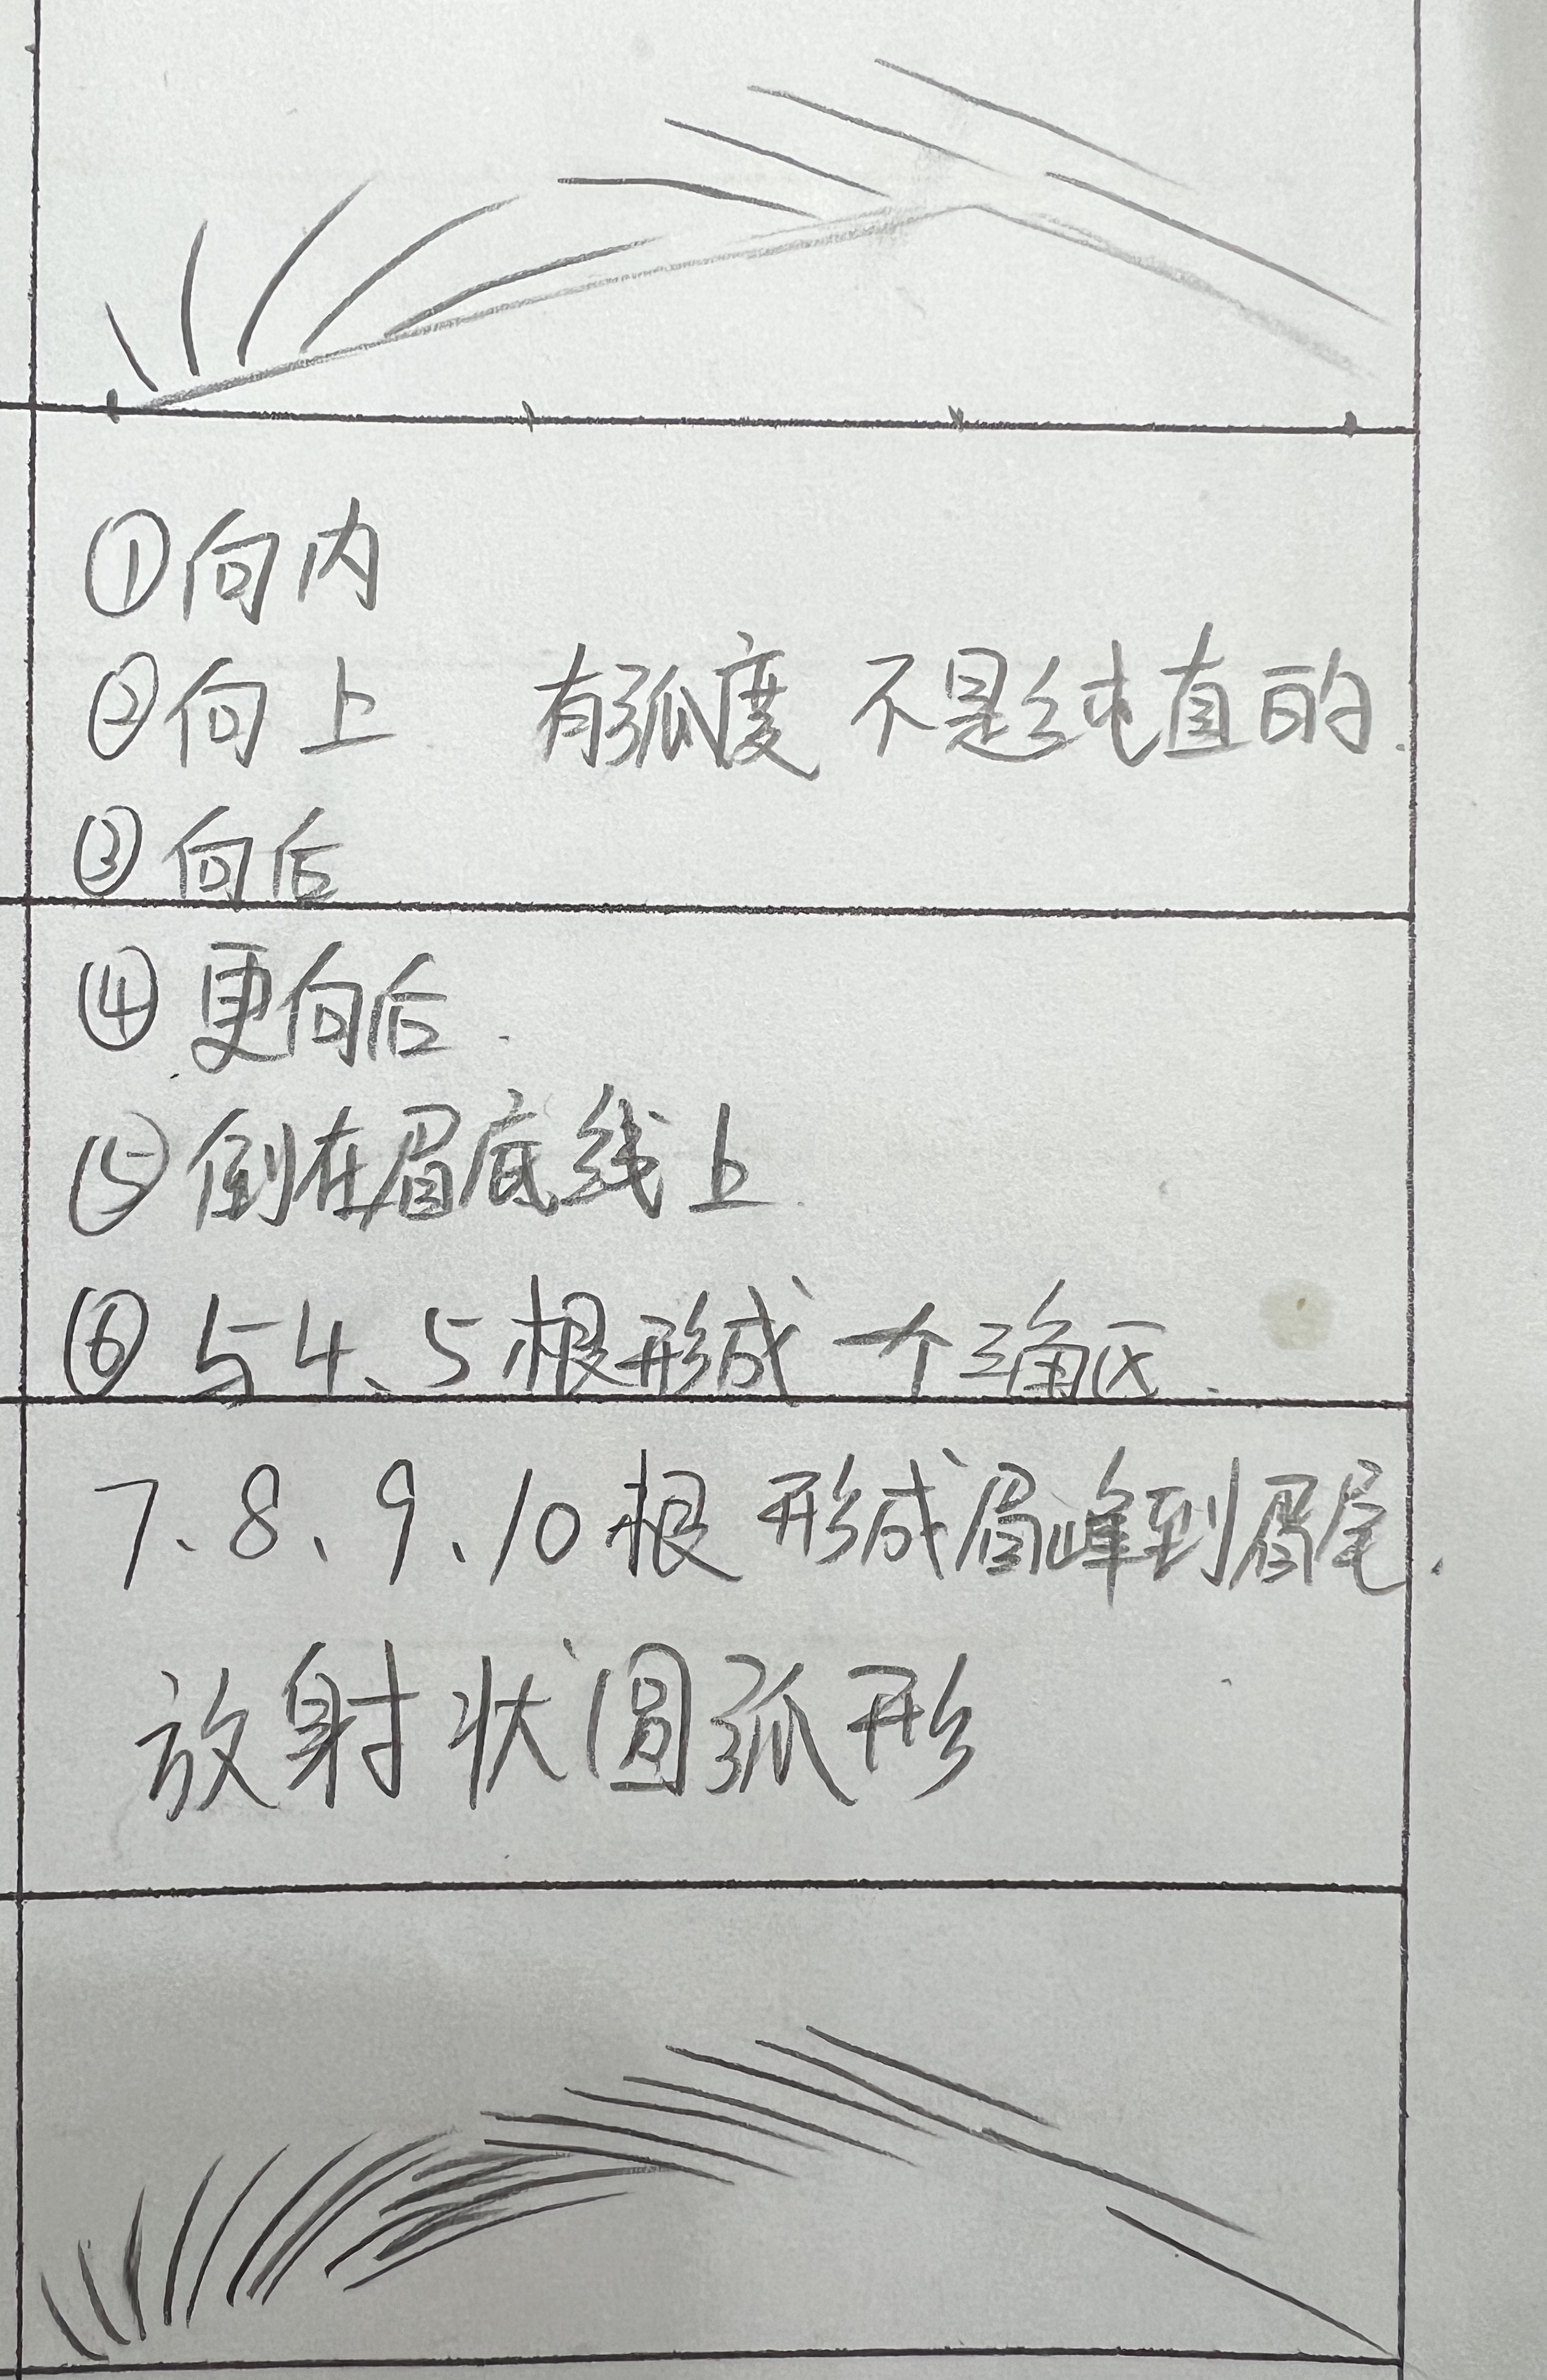 ①向内
②向上 有弧度 不是纯直的.
③向后
④更向后.
⑤倒在眉底线上.
⑥与4、5根形成一个三角区.
7、8、9、10根 形成眉峰到眉尾.
放射状圆弧形